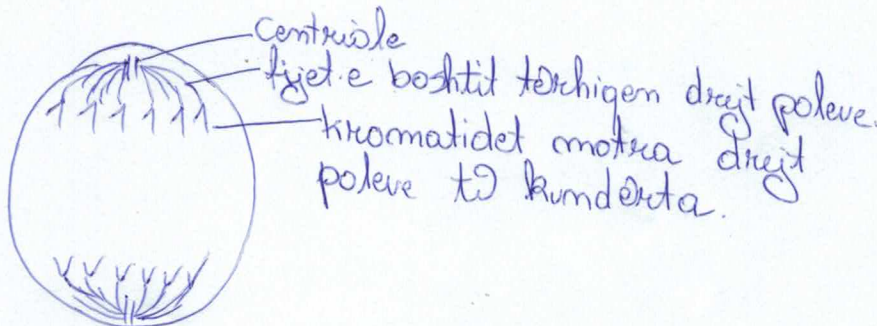 centriole
fijet e boshtit tërhiqen drejt poleve.
kromatidet motra drejt
poleve të kundërta.